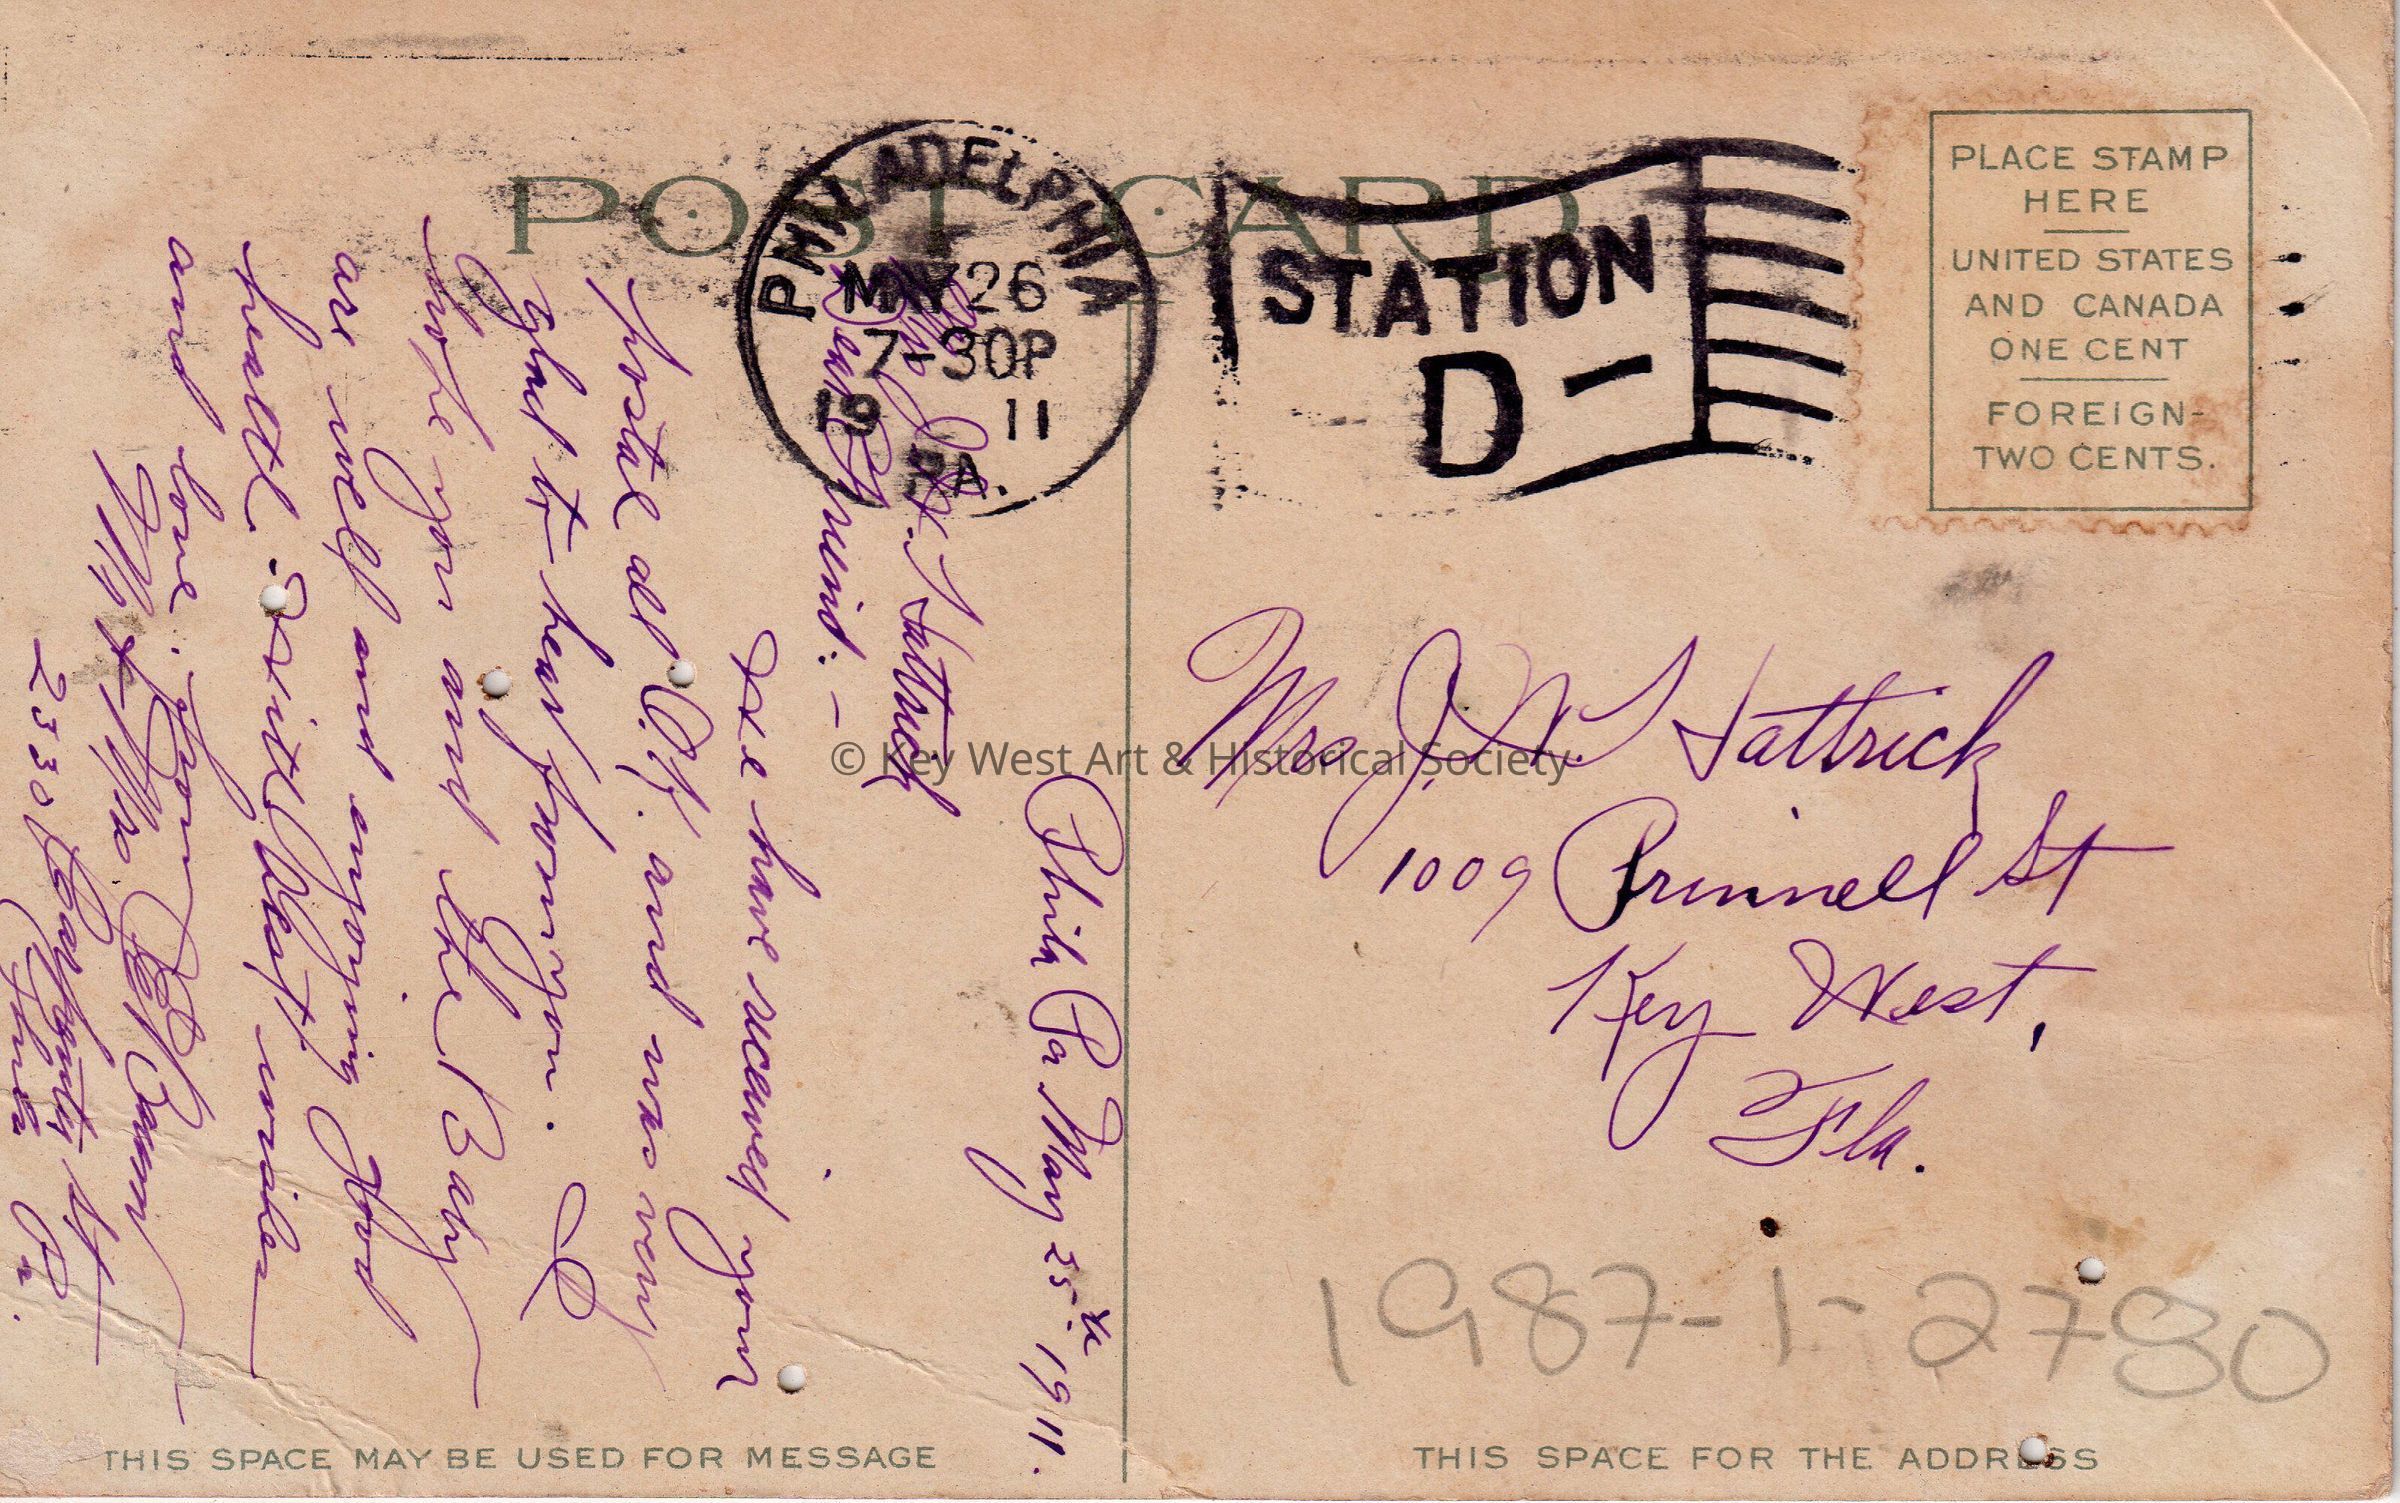 POST CARD
PHILADELPHIA
MAY 26
7-30P
19 11
PA.
STATION
D-
PLACE STAMP
HERE
UNITED STATES
AND CANADA
ONE CENT
FOREIGN-
TWO CENTS.
Phila Pa May 25th 1911.
Mrs J. W. Sattrick
Dear Friend: -
We have received your
postal all O.K. and was very
glad to hear from you. I
hope you and the Baby
are well and enjoying Good
health. With Best wishes
and love. From
Mr & Mrs.
2330 St
Phila Pa.
Mrs J. W. Sattrick
1009 Grinnell St
Key West,
Fla.
1987-1-2780
© Key West Art & Historical Society
THIS SPACE MAY BE USED FOR MESSAGE
THIS SPACE FOR THE ADDRESS